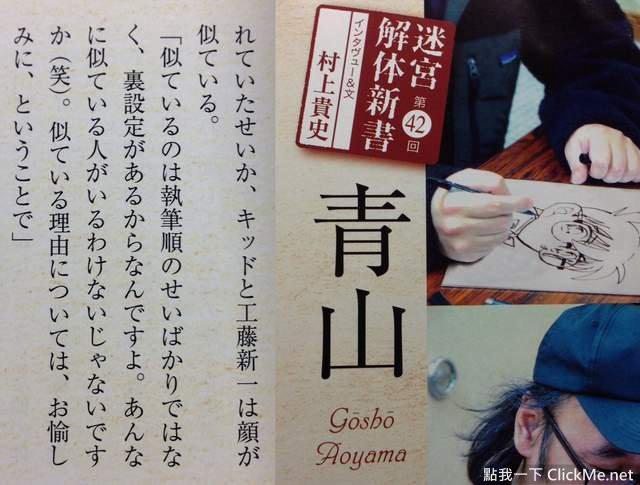 迷宮
解体新書
第42回
インタヴュー&文
村上貴史
青山
Gōshō
Aoyama
れていたせいか、キッドと工藤新一は顔が
似ている。
「似ているのは執筆順のせいばかりではな
く、裏設定があるからなんですよ。あんな
に似ている人がいるわけないじゃないです
か（笑）。似ている理由については、お愉し
みに、ということで」
點我一下 ClickMe.net